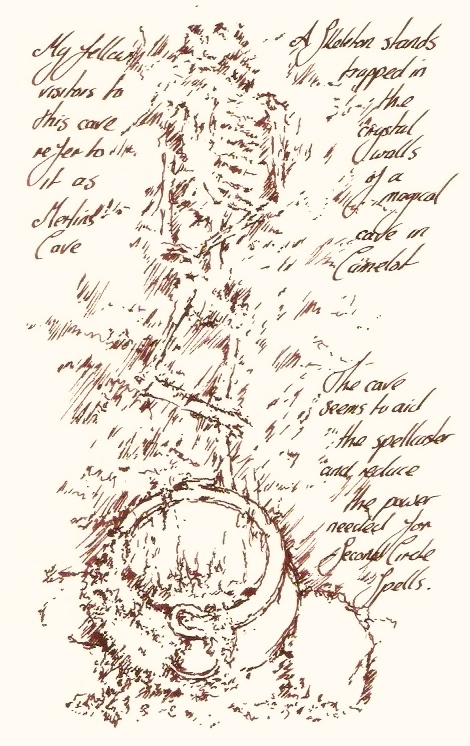 My fellow
visitors to
this cave
refer to
it as
Merlins
Cave
A Skeleton stands
trapped in
the
crystal
walls
of a
magical
cave in
Camelot
The cave
seems to aid
the spellcaster
and reduce
the power
needed for
Second Circle
Spells.